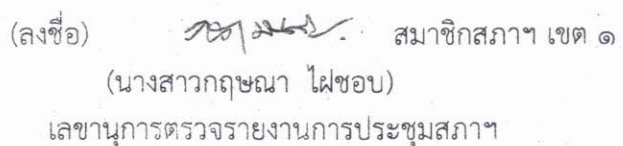 (ลงชื่อ) สมาชิกสภาฯ เขต ๑
(นางสาวกฤษณา ไฝชอบ)
เลขานุการตรวจรายงานการประชุมสภาฯ